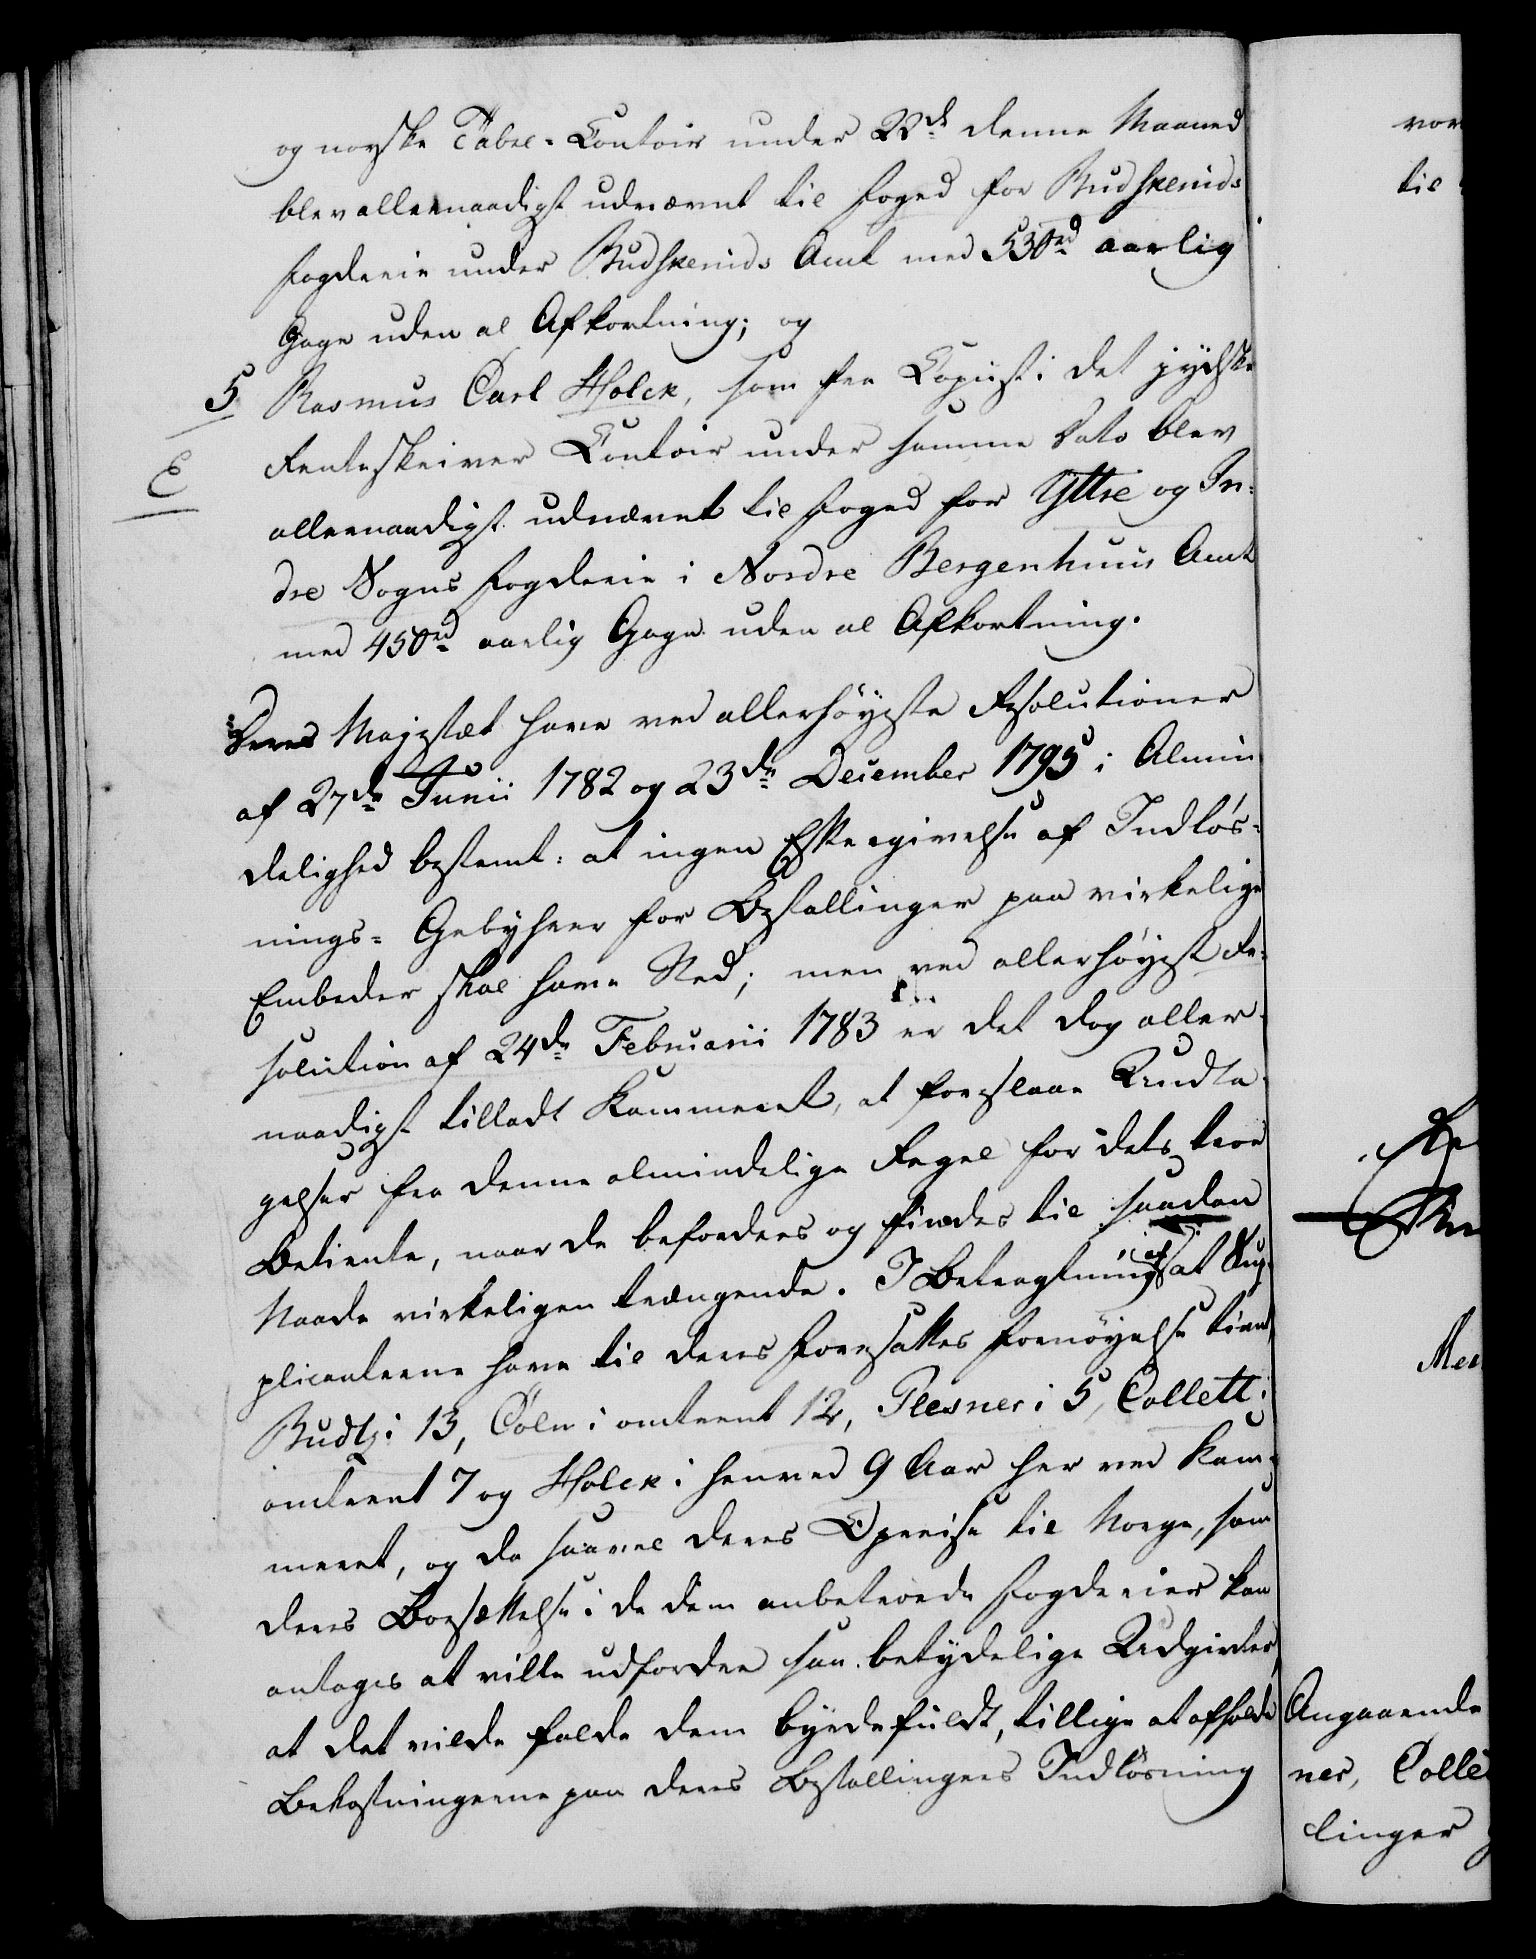 og norske Tabel-Contoir under 23de denne Maaned
blev allernaadigst udnævnt til Foged for Budskeruds
Fogderie under Budskeruds Amt med 530rd aarlig
Gage uden al Afkortning; og
5 Rasmus Carl Holck, som fra Copiist i det jydske
E Renteskriver Contoir under samme Dato blev
allernaadigst udnævnt til Foged for Yttre og In-
dre Sogns Fogderie i Nordre Bergenhuus Amt
med 450rd aarlig Gage uden al Afkortning.
Deres Majestæt have ved allerhøyeste Resolutioner
af 27de Junii 1782 og 23de December 1795 i Almin
delighed bestemt: at ingen Eftergivelse af Indløs-
nings-Gebyhrer for Bestallinger paa virkelige
Embeder skal have Sted; men ved allerhøyest Re-
solution af 24de Februarii 1783 er det dog aller-
naadigst tilladt Kammeret, at foreslaae Undta-
gelser fra denne almindelige Regel for dets troe
Betiente, naar de befordres og findes til saadan
Naade virkeligen trængende. I Betragtning af at Sup-
plicanterne have til deres Foresattes Fornøyelse tient,
Budtz i 13, Cöln i omtrent 12, Plesner i 5, Collett i
omtrent 7 og Holck i henved 9 Aar her ved Kam-
meret, og da saavel deres Opreise til Norge, som
deres Bosættelse i de dem anbetroede Fogderier kan
antages at ville udfordre saa betydelige Udgivter,
at det vilde falde dem byrdefuldt, tillige at afholde
Bekostningerne paa deres Bestallingers Indløsning
vor
til
Mer
Angaaende
ner, Colle
linger